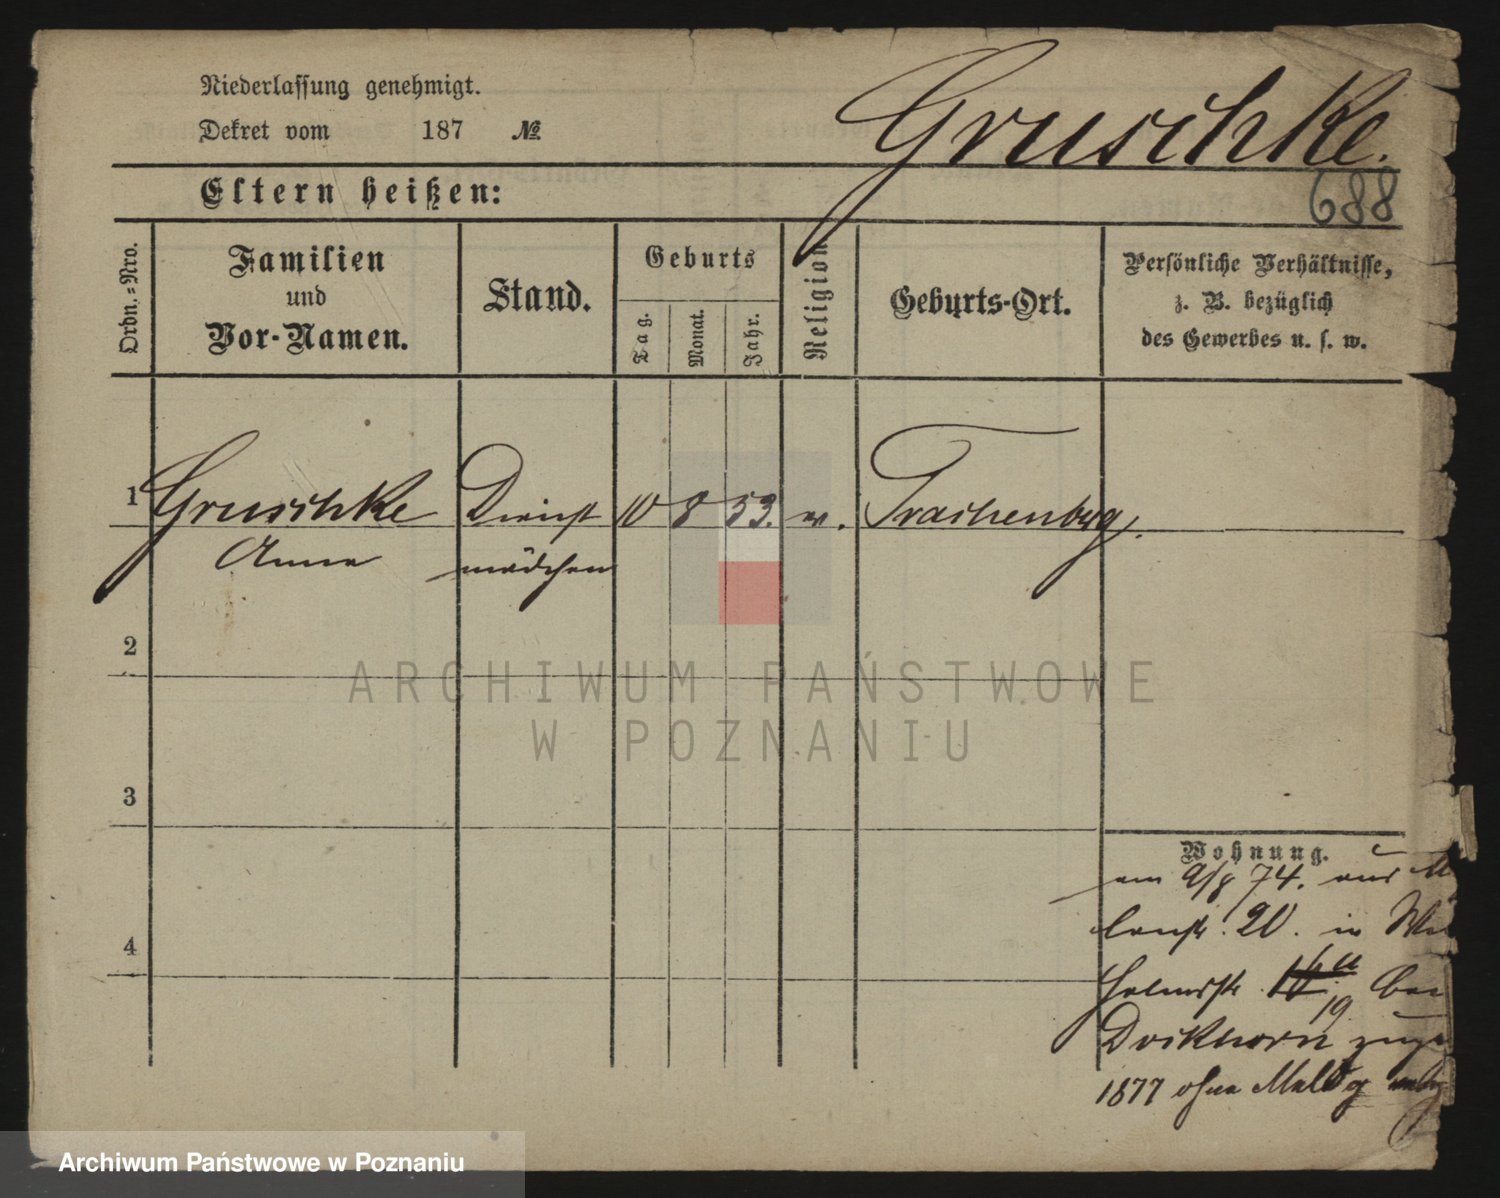 Niederlassung genehmigt.
Dekret vom 187 №
Gruschke.
688
Eltern heißen:
Ordn.-Nro.
Familien
und
Vor-Namen.
Stand.
Geburts
Tag.
Monat.
Jahr.
Religion
Geburts-Ort.
Persönliche Verhältnisse,
z. B. bezüglich
des Gewerbes u. s. w.
1 Gruschke Dienst 10 8 53. Trachenbrg.
Anna mädchen
2
3
4
Wohnung.
am 74. aus
20. in
helmstr. 19 bei
1877 ohne Meldg
ARCHIWUM PAŃSTWOWE
W POZNANIU
Archiwum Państwowe w Poznaniu